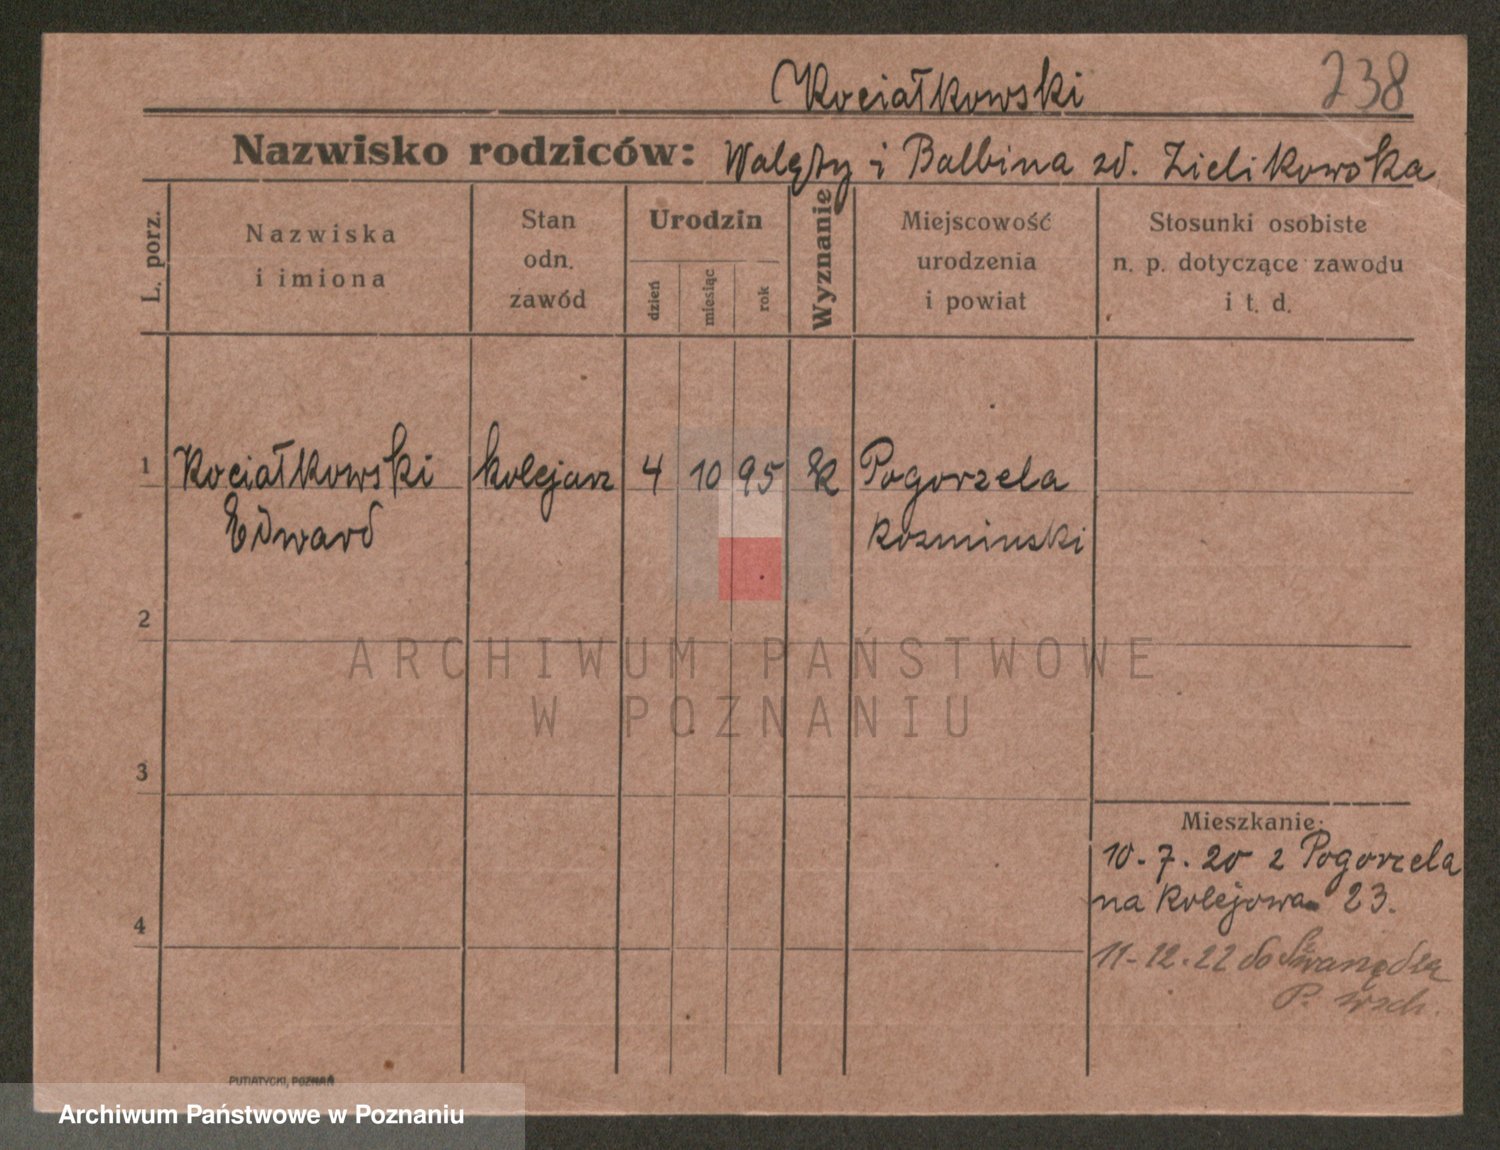 Kociałkowski 238
Nazwisko rodziców: Walęty i Balbina zd. Zielikowska
L. porz.
Nazwiska
i imiona
Stan
odn.
zawód
Urodzin
dzień
miesiąc
rok
Wyznanie
Miejscowość
urodzenia
i powiat
Stosunki osobiste
n. p. dotyczące zawodu
i t. d.
1 Kociałkowski kolejarz 4 10 95 k Pogorzela
Edward koźminski
2
ARCHIWUM PAŃSTWOWE
W POZNANIU
3
Mieszkanie:
10-7.20 z Pogorzela
na Kolejowa 23.
4
11-12.22 do Swarzędza
P. wsch.
PUTIATYCKI, POZNAŃ
Archiwum Państwowe w Poznaniu